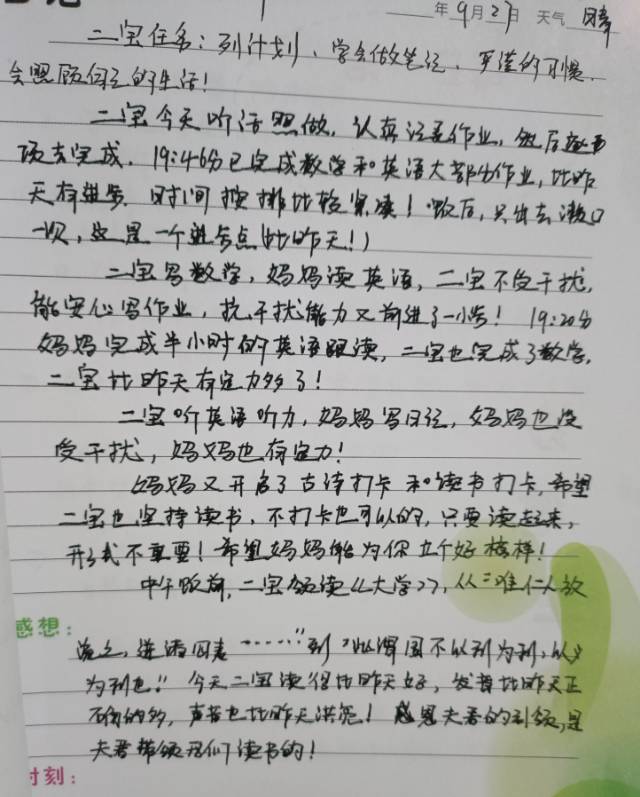 年9月27日 天气 晴
二宝任务：列计划、学会做笔记、严谨的习惯.
会照顾自己的生活！
二宝今天听话照做，认真记录作业，然后逐
项去完成. 19:46分已完成数学和英语大部分作业，比昨
天有进步. 时间安排比较紧凑！饭后，只出去漱口
一次，这是一个进步点（比昨天！）
二宝写数学，妈妈读英语，二宝不受干扰，
能安心写作业，抗干扰能力又前进了一小步！19:20分
妈妈完成半小时的英语跟读，二宝也完成了数学，
二宝比昨天有定力多了！
二宝听英语听力，妈妈写日记，妈妈也没
受干扰，妈妈也有定力！
妈妈又开启了古诗打卡和读书打卡，希望
二宝也坚持读书，不打卡也可以的，只要读起来，
形式不重要！希望妈妈能为你立个好榜样！
中午饭前，二宝领读《大学》，从"唯仁人放
感想：
流之，迸诸四夷……"到"此谓国不以利为利，以义
为利也！"今天二宝读得比昨天好，发音比昨天正
确的多，声音也比昨天洪亮！感恩夫君的引领，是
夫君带领我们读书的！
时刻：